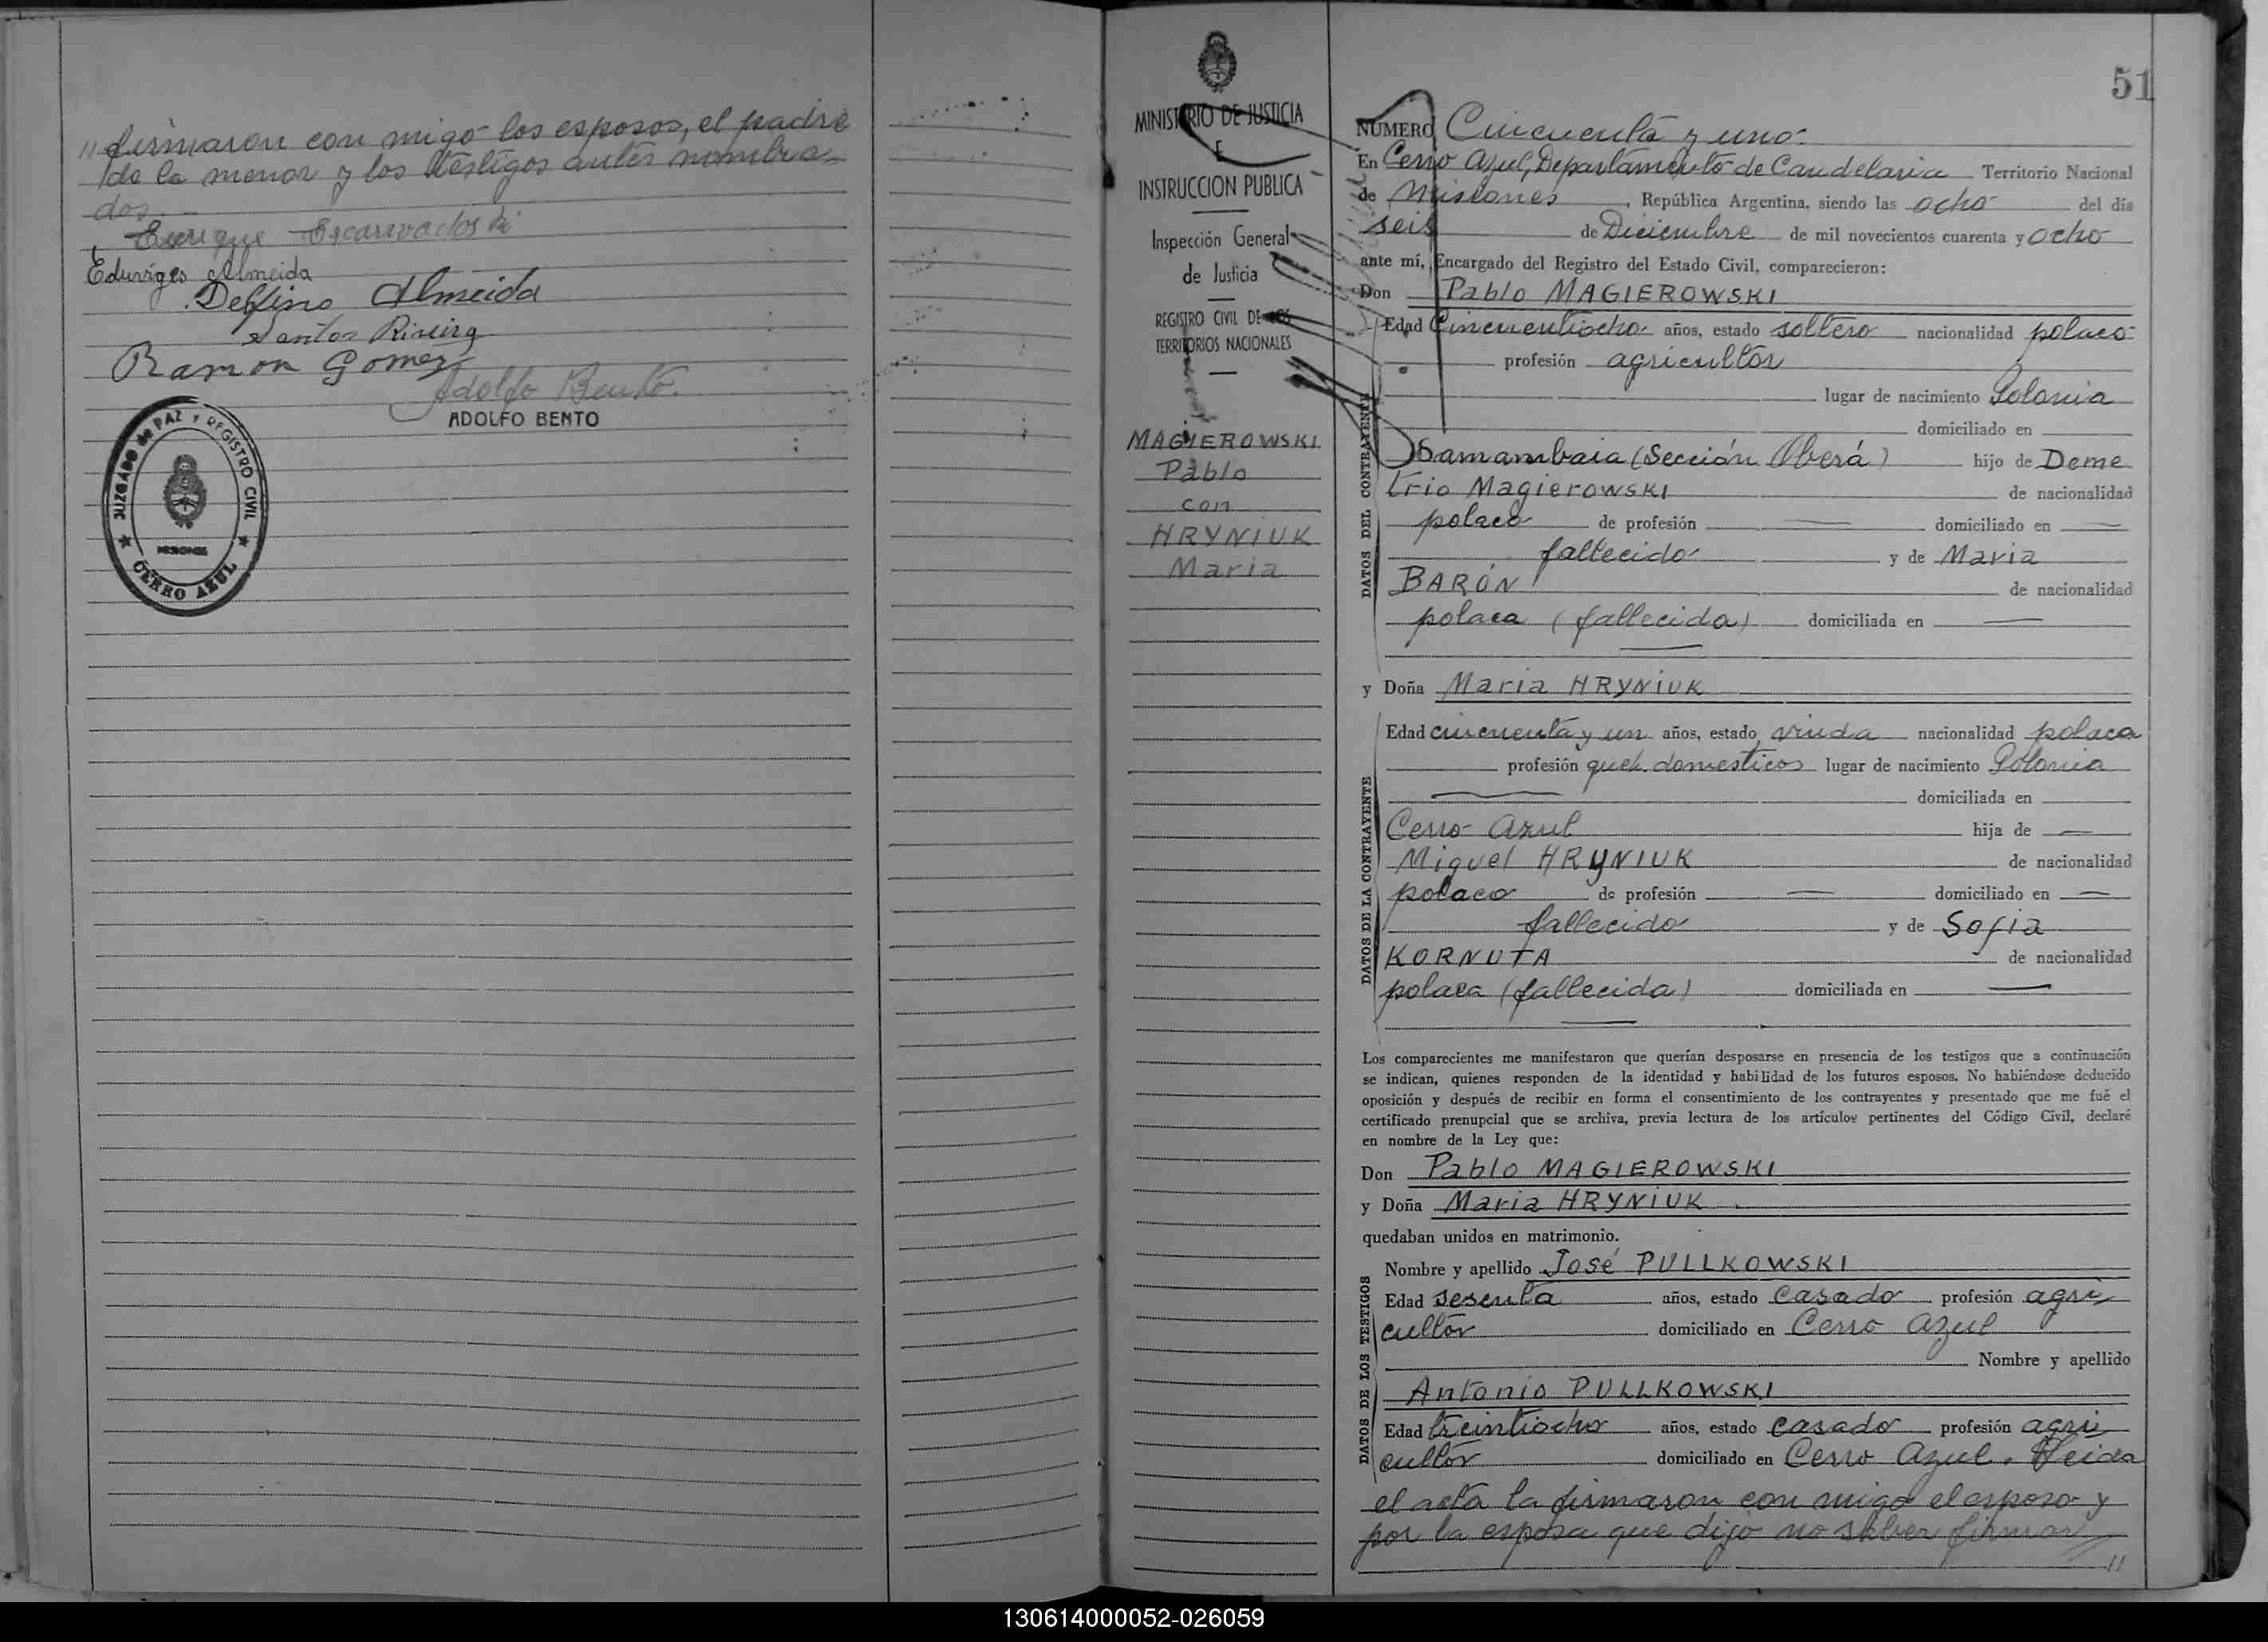 // firmaron con migo los esposos, el padre
de la menor y los testigos antes nombra-
dos.
Enrique
Eduviges Almeida
Delfino Almeida
Santos
Ramon Gomez
Adolfo Bento.
ADOLFO BENTO
JUZGADO de PAZ Y REGISTRO CIVIL
MISIONES
CERRO AZUL
MINISTERIO DE JUSTICIA
E
INSTRUCCION PUBLICA
Inspección General
de Justicia
REGISTRO CIVIL DE LOS
TERRITORIOS NACIONALES
MAGIEROWSKI
Pablo
con
HRYNIUK
Maria
51
NÚMERO Cincuenta y uno.
En Cerro Azul, Departamento de Candelaria Territorio Nacional
de Misiones, República Argentina, siendo las ocho del día
seis de Diciembre de mil novecientos cuarenta y ocho
ante mí, Encargado del Registro del Estado Civil, comparecieron:
Don Pablo MAGIEROWSKI
DATOS DEL CONTRAYENTE
Edad Cincuentiocho años, estado soltero nacionalidad polaco
profesión agricultor
lugar de nacimiento Polonia
domiciliado en
Samambaia (Sección Oberá) hijo de Deme
trio Magierowski de nacionalidad
polaco de profesión — domiciliado en —
fallecido y de Maria
BARÓN de nacionalidad
polaca (fallecida) domiciliada en —
y Doña Maria HRYNIUK
DATOS DE LA CONTRAYENTE
Edad cincuenta y un años, estado viuda nacionalidad polaca
profesión queh. domesticos lugar de nacimiento Polonia
domiciliada en
Cerro Azul hija de —
Miguel HRYNIUK de nacionalidad
polaco de profesión — domiciliado en —
fallecido y de Sofia
KORNUTA de nacionalidad
polaca (fallecida) domiciliada en —
Los comparecientes me manifestaron que querían desposarse en presencia de los testigos que a continuación
se indican, quienes responden de la identidad y habilidad de los futuros esposos. No habiéndose deducido
oposición y después de recibir en forma el consentimiento de los contrayentes y presentado que me fué el
certificado prenupcial que se archiva, previa lectura de los artículos pertinentes del Código Civil, declaré
en nombre de la Ley que:
Don Pablo MAGIEROWSKI
y Doña Maria HRYNIUK
quedaban unidos en matrimonio.
DATOS DE LOS TESTIGOS
Nombre y apellido José PULLKOWSKI
Edad sesenta años, estado casado profesión agri
cultor domiciliado en Cerro Azul
Nombre y apellido
Antonio PULLKOWSKI
Edad treintiocho años, estado casado profesión agri
cultor domiciliado en Cerro Azul. Leida
el acta la firmaron con migo el esposo y
por la esposa que dijo no saber firmar
//
130614000052-026059